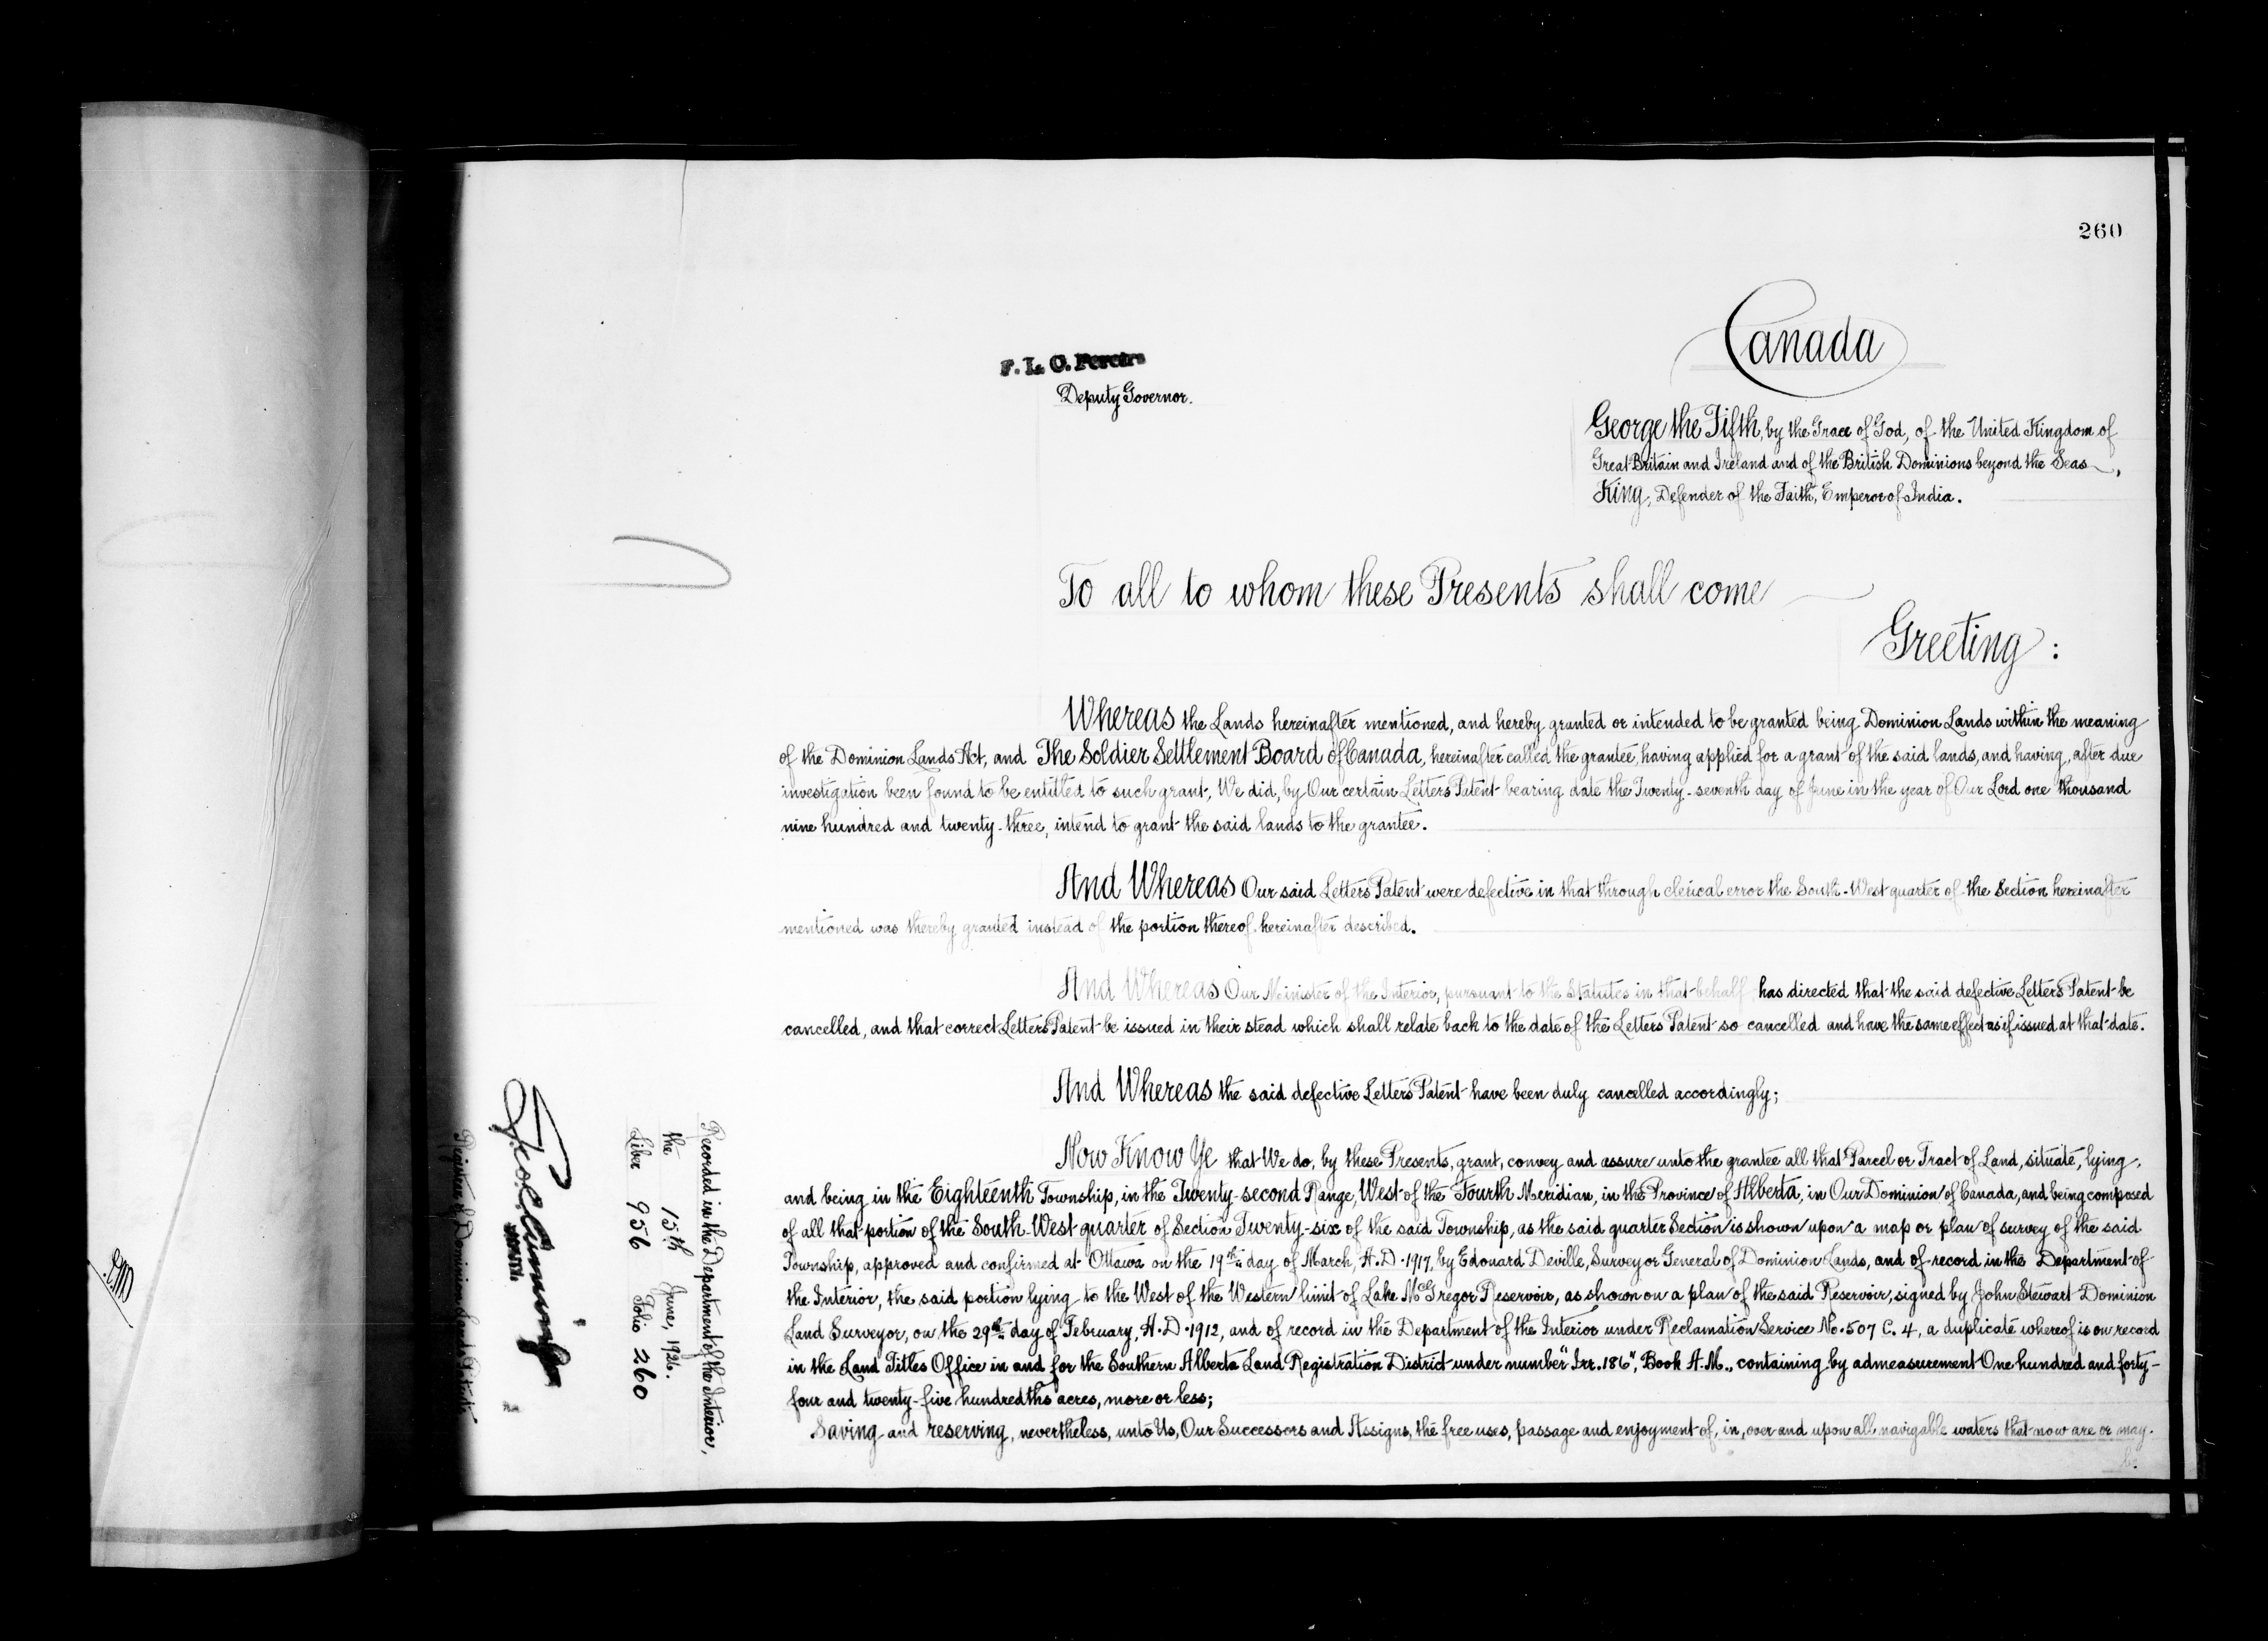 260
Canada
F. L. C. Pereira
Deputy Governor.
George the Fifth, by the Grace of God, of the United Kingdom of
Great Britain and Ireland and of the British Dominions beyond the Seas,
King, Defender of the Faith, Emperor of India.
To all to whom these Presents shall come
Greeting:
Whereas the Lands hereinafter mentioned, and hereby granted or intended to be granted being Dominion Lands within the meaning
of the Dominion Lands Act, and The Soldier Settlement Board of Canada, hereinafter called the grantee, having applied for a grant of the said lands, and having, after due
investigation been found to be entitled to such grant, We did, by Our certain Letters Patent bearing date the Twenty-seventh day of June in the year of Our Lord one thousand
nine hundred and twenty-three, intend to grant the said lands to the grantee.
And Whereas Our said Letters Patent were defective in that through clerical error the South-West quarter of the Section hereinafter
mentioned was thereby granted instead of the portion thereof hereinafter described.
And Whereas Our Minister of the Interior, pursuant to the Statutes in that behalf has directed that the said defective Letters Patent be
cancelled, and that correct Letters Patent be issued in their stead which shall relate back to the date of the Letters Patent so cancelled and have the same effect as if issued at that date.
And Whereas the said defective Letters Patent have been duly cancelled accordingly;
Now Know Ye that We do, by these Presents, grant, convey and assure unto the grantee all that Parcel or Tract of Land, situate, lying,
and being in the Eighteenth Township, in the Twenty-second Range, West of the Fourth Meridian, in the Province of Alberta, in Our Dominion of Canada, and being composed
of all that portion of the South-West quarter of Section Twenty-six of the said Township, as the said quarter Section is shown upon a map or plan of survey of the said
Township, approved and confirmed at Ottawa on the 19th day of March, A.D. 1917, by Edouard Deville, Surveyor General of Dominion Lands, and of record in the Department of
the Interior, the said portion lying to the West of the Western limit of Lake McGregor Reservoir, as shown on a plan of the said Reservoir, signed by John Stewart Dominion
Land Surveyor, on the 29th day of February, A.D. 1912, and of record in the Department of the Interior under Reclamation Service No. 507 C. 4, a duplicate whereof is on record
in the Land Titles Office in and for the Southern Alberta Land Registration District under number "Irr. 186", Book A.M., containing by admeasurement One hundred and forty-
four and twenty-five hundredths acres, more or less;
Saving and reserving, nevertheless, unto Us, Our Successors and Assigns, the free uses, passage and enjoyment of, in, over and upon all navigable waters that now are or may
be
Recorded in the Department of the Interior,
the 15th June, 1926.
Liber 956 Folio 260
Registrar of Dominion Lands Patents